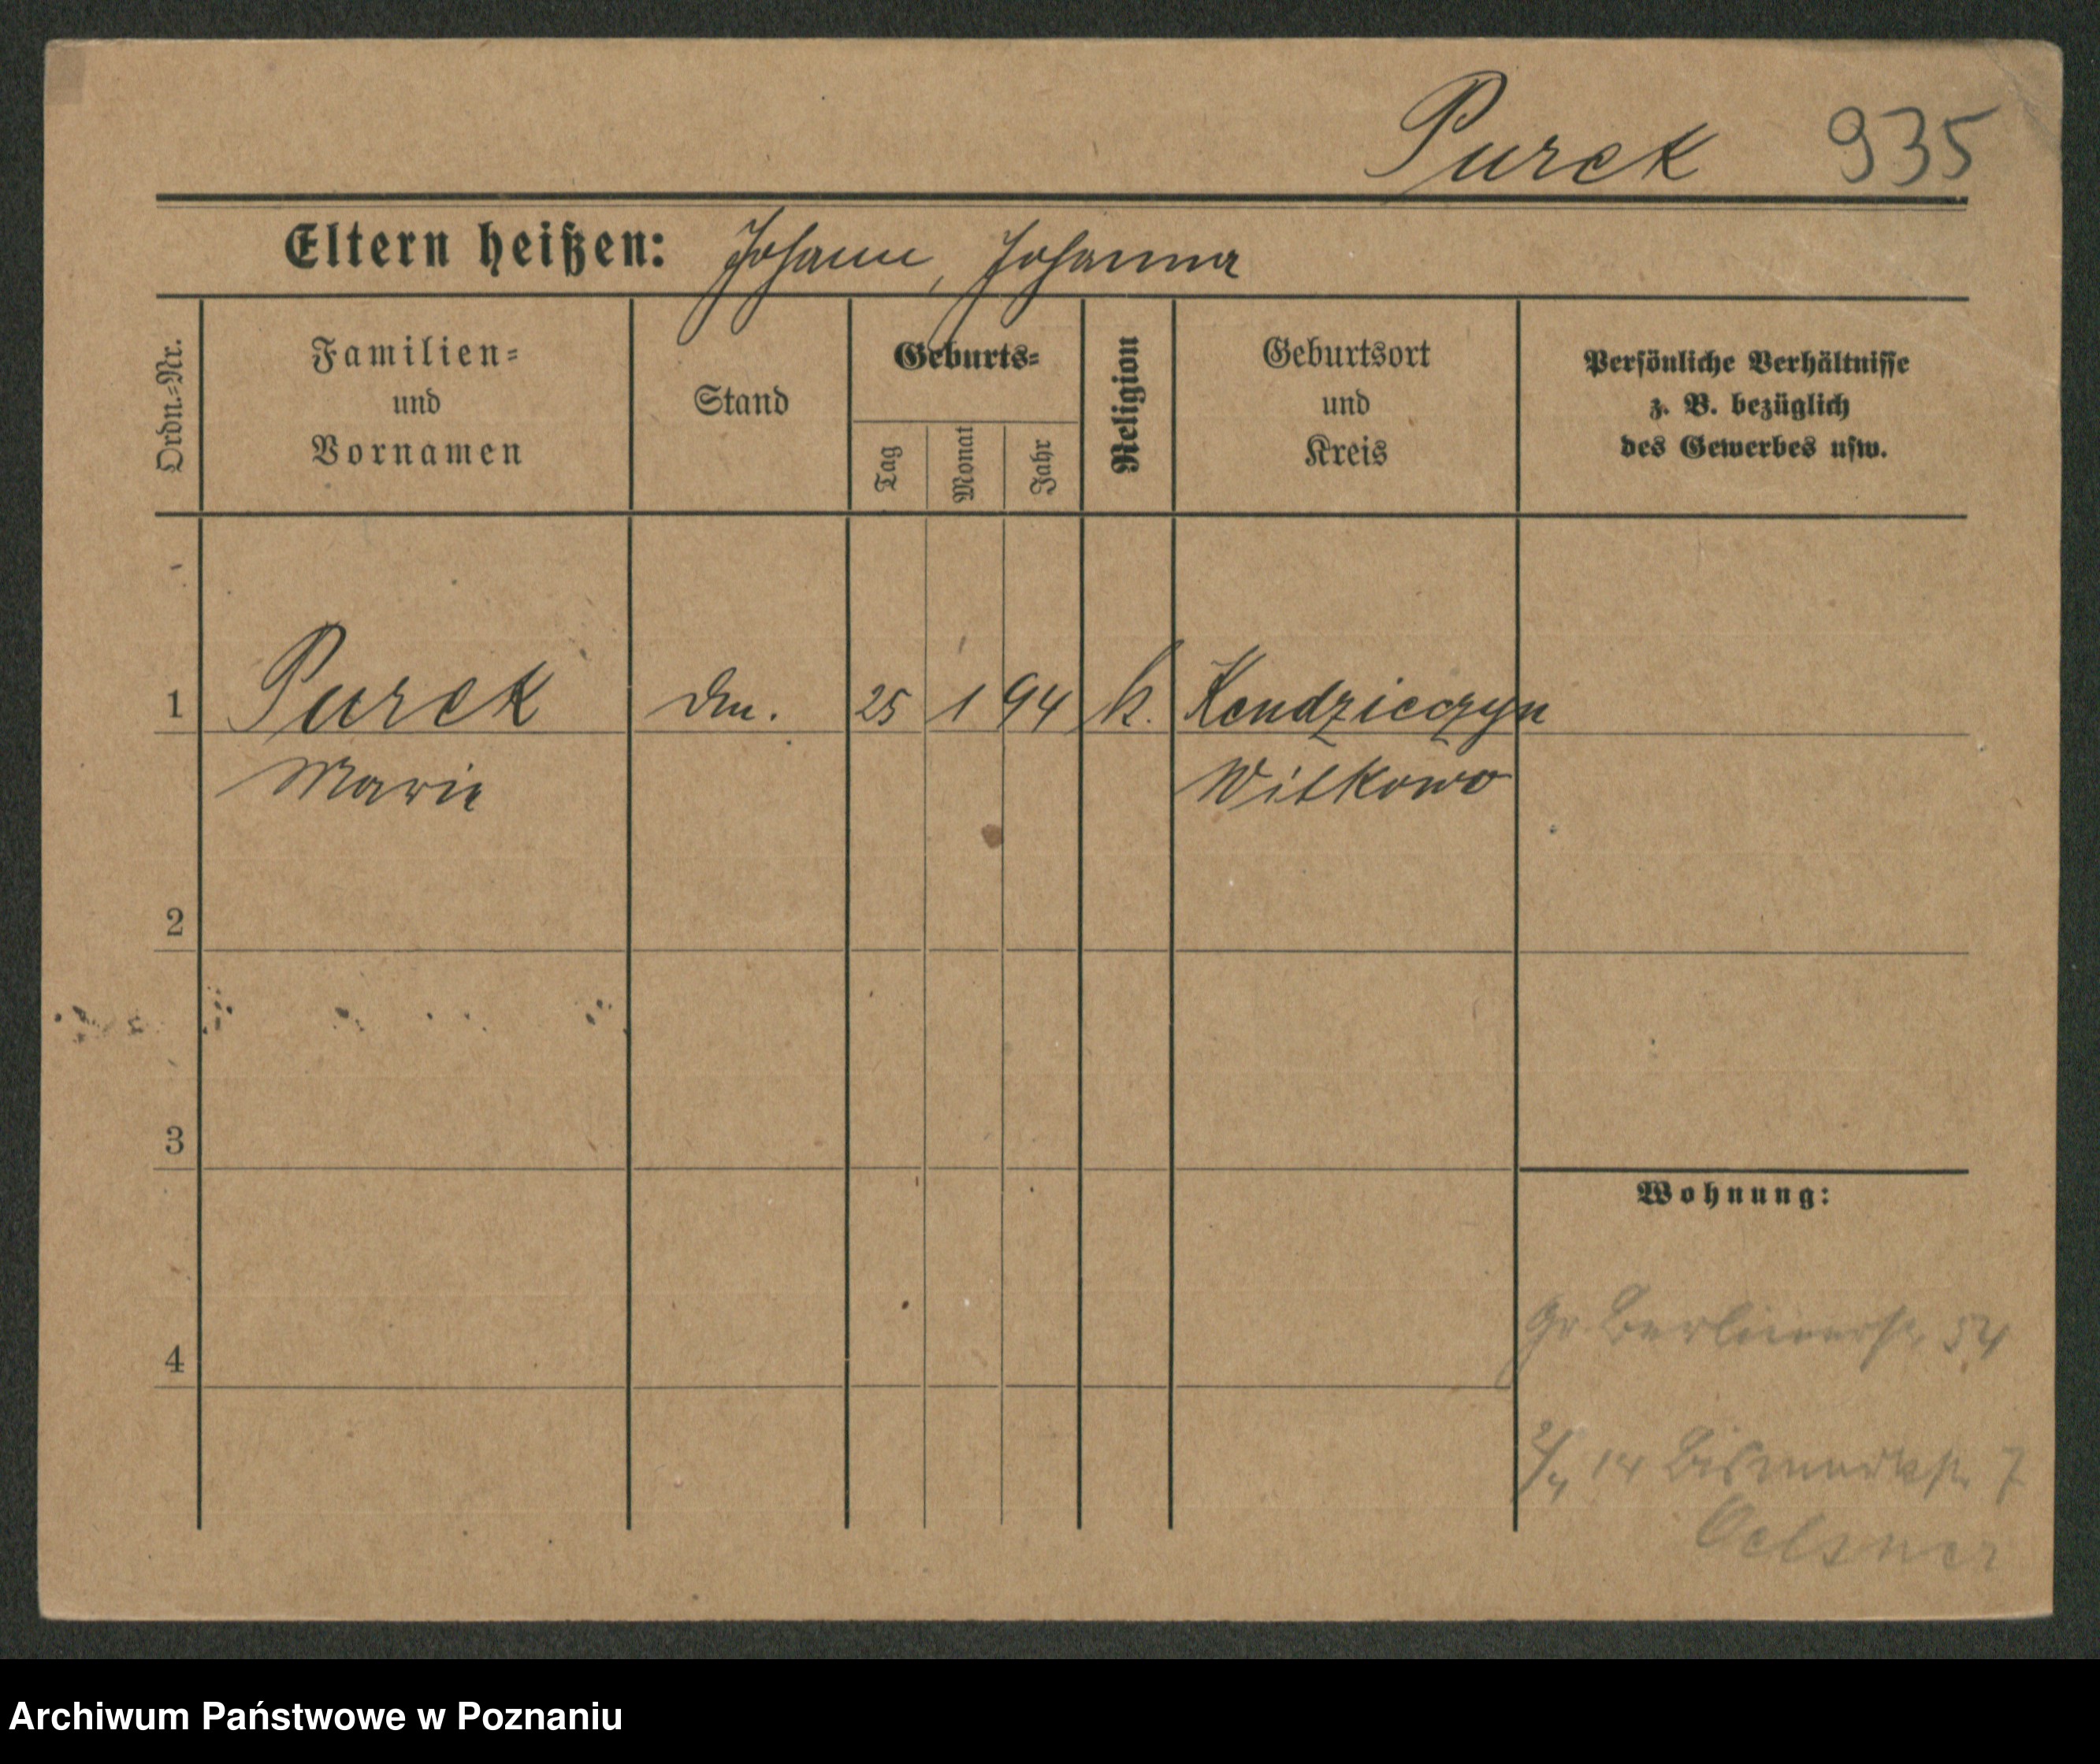 Purek 935
Eltern heißen: Johann, Johanna
Ordn.=Nr.
Familien=
und
Vornamen
Stand
Geburts=
Tag
Monat
Jahr
Religion
Geburtsort
und
Kreis
Persönliche Verhältnisse
z. B. bezüglich
des Gewerbes usw.
1 Purek 25 1 94 k. Kendzierzyn
Marie Witkowo
2
3
4
Wohnung:
Gr. Berlinerstr. 54
14 Bismarckstr. 7
Oelsner
Archiwum Państwowe w Poznaniu